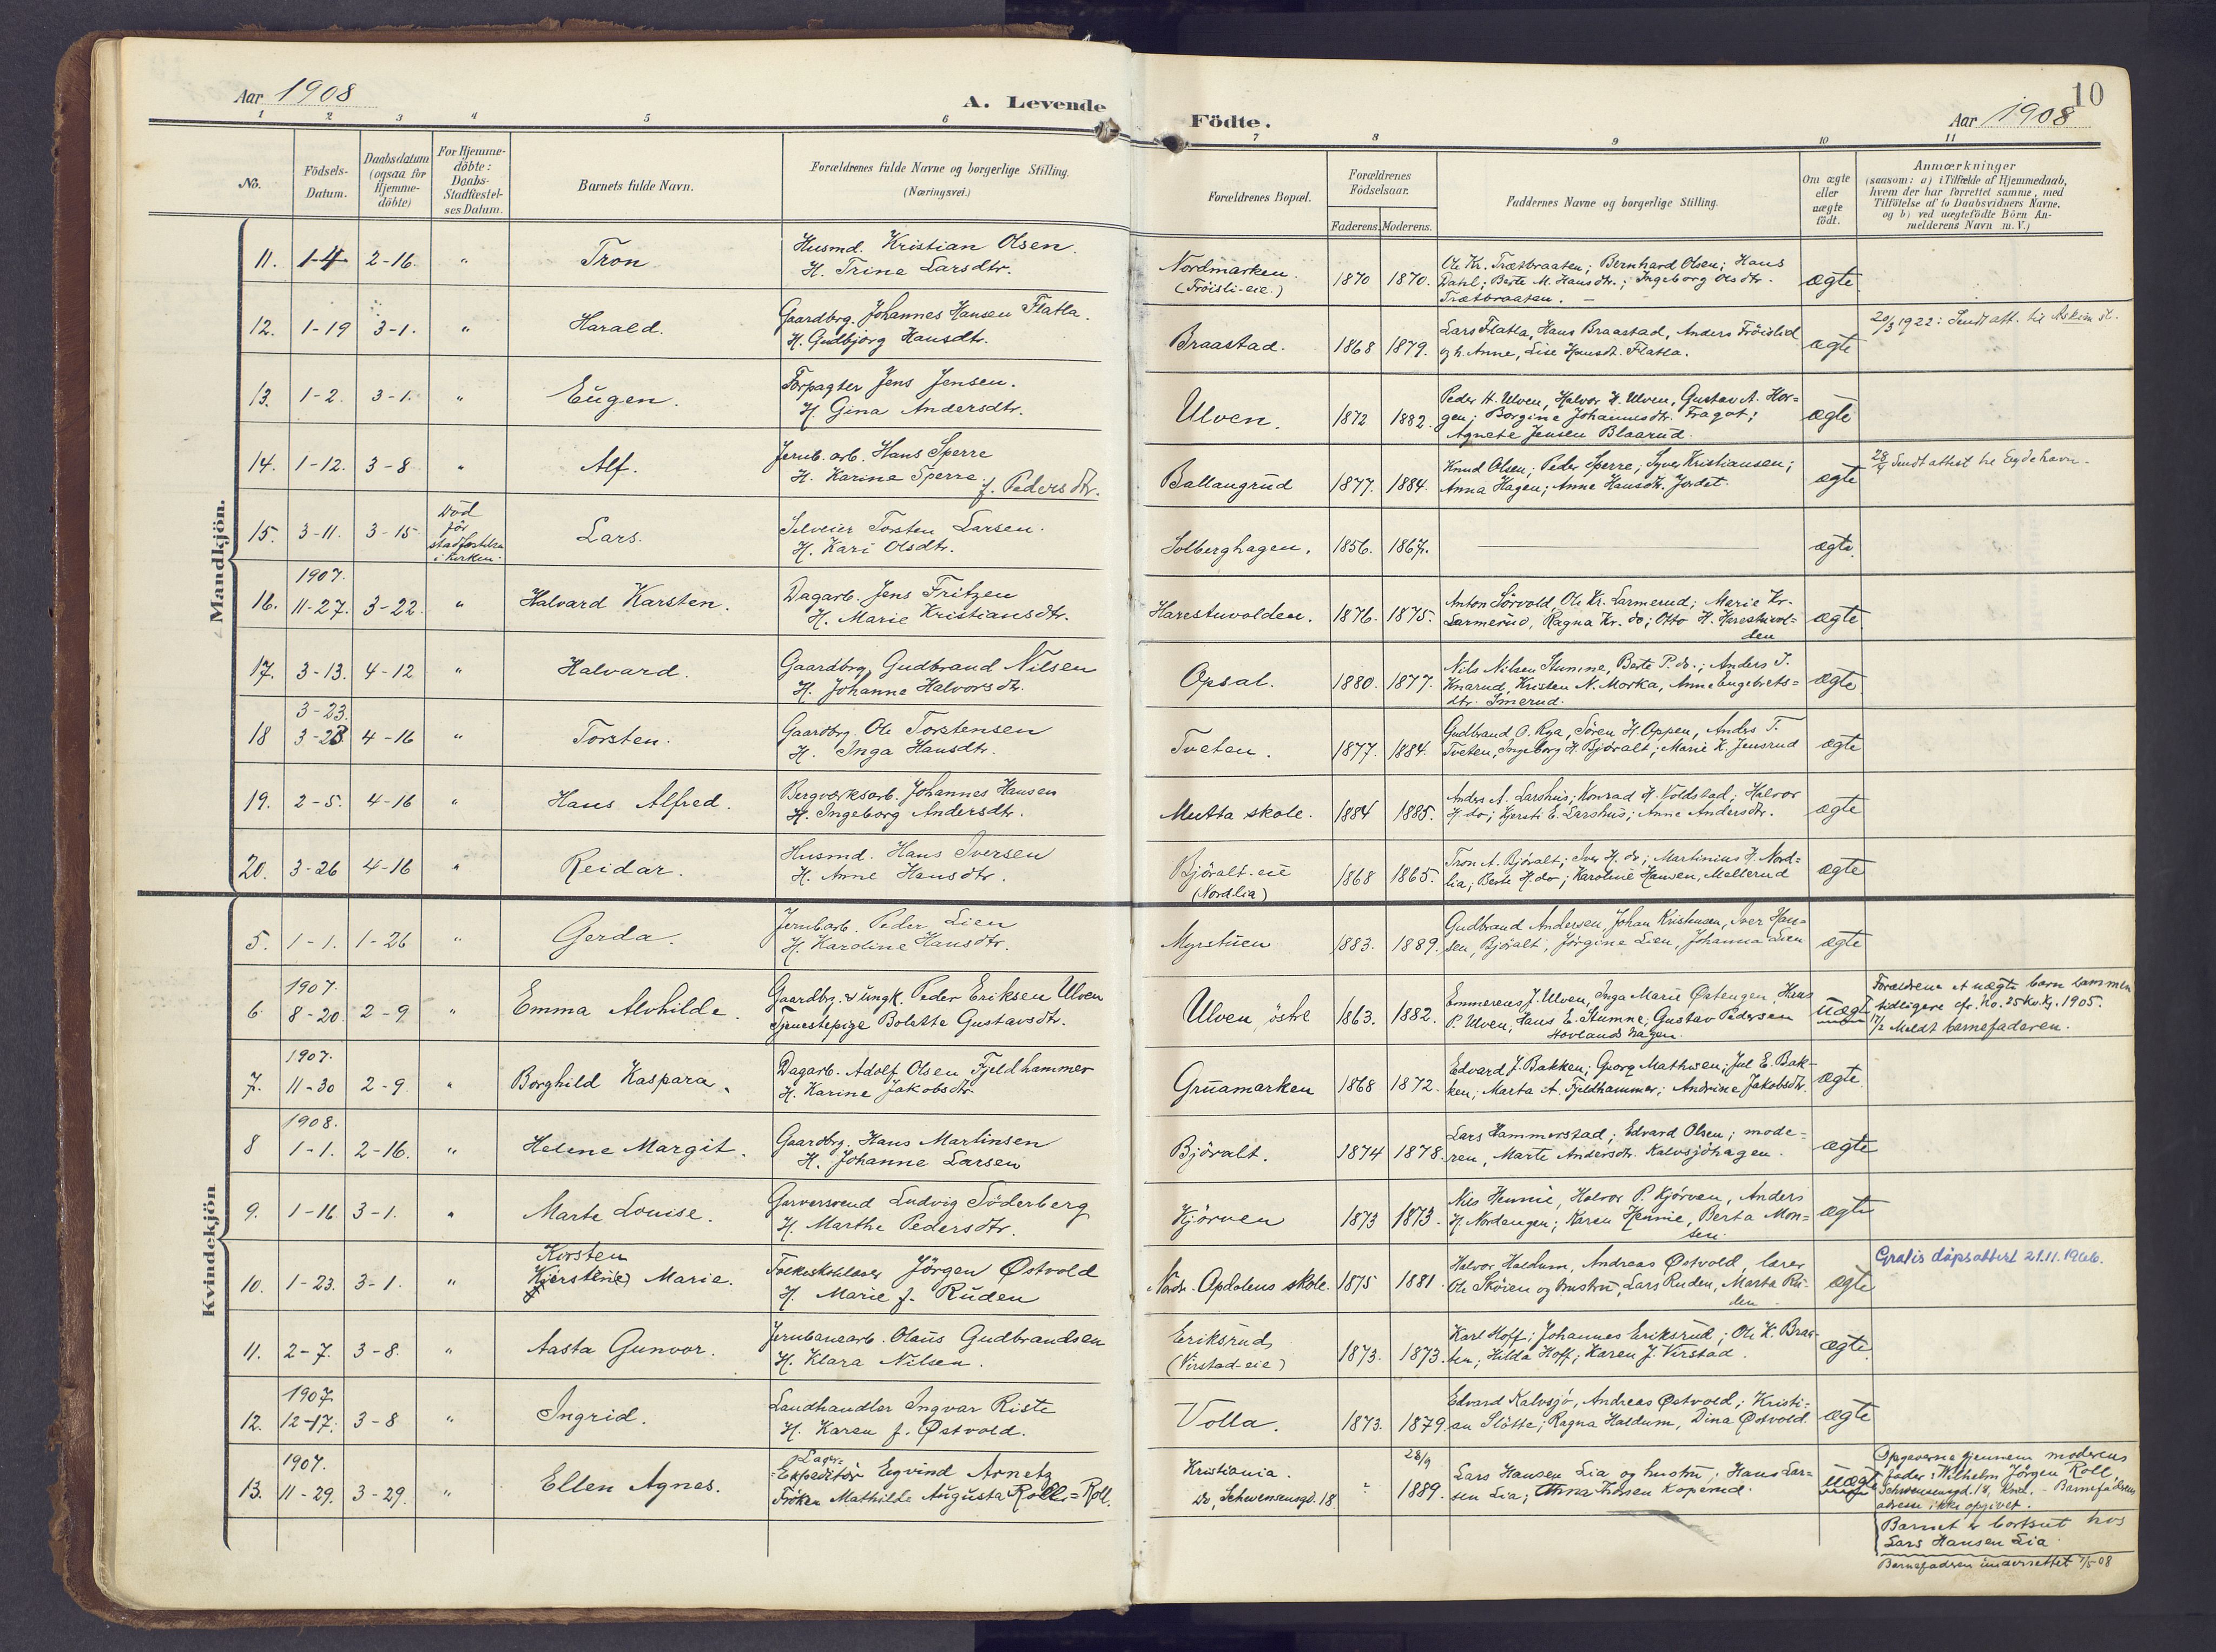 Aar 1908
A. Levende
Födte.
Aar 1908
10
1 2 3 4 5 6 7 8 9 10 11
No.
Födsels-
Datum.
Daabsdatum
(ogsaa for
Hjemme-
döbte)
For Hjemme-
döbte:
Daabs-
Stadfæstel-
ses Datum.
Barnets fulde Navn.
Forældrenes fulde Navne og borgerlige Stilling.
(Næringsvei.)
Forældrenes Bopæl.
Forældrenes
Födselsaar.
Faderens. Moderens.
Faddernes Navne og borgerlige Stilling.
Om ægte
eller
uægte
födt.
Anmærkninger
(saasom: a) i Tilfælde af Hjemmedaab,
hvem der har forrettet samme, med
Tilföielse af to Daabsvidners Navne,
og b) ved uægtefödte Börn An-
melderens Navn m. V.)
Mandkjön.
11. 1-4 2-16. " Tron
Husmd. Kristian Olsen.
H. Trine Larsdtr.
Nordmarken.
(Fröisli-eie.)
1870 1870.
Ole Kr. Trætbraaten; Bernhard Olsen; Hans
Dahl; Berte M. Hansdtr.; Ingeborg Olsdtr.
Trætbraaten. -
ægte
12. 1-19 3-1. " Harald.
Gaardbrg. Johannes Hansen Flatla.
H. Gudbjörg Hansdtr.
Braastad. 1868 1879.
Lars Flatla, Hans Braastad, Anders Fröislid
og h. Anne, Lise Hansdt. Flatla.
ægte
20/3 1922: Sendt att. til Askim st.
13. 1-2. 3-1. " Eugen.
Forpagter Jens Jensen.
H. Gina Andersdtr.
Ulven. 1872 1882.
Peder H. Ulven, Halvor H. Ulven, Gustav A. Hor-
gen; Borgine Johannesdtr. Fragot;
Agnete Jensen Blaarud.
ægte
14. 1-12. 3-8 " Alf.
Jernb. arb. Hans Sperre
H. Karine Sperre f. Pedersdtr.
Ballangrud 1877. 1884.
Knud Olsen; Peder Sperre; Syver Kristiansen;
Anna Hagen; Anne Hansdtr. Jordet.
ægte
Sendt attest til Eydehavn.
15. 3-11. 3-15
Död
för
stadfæstelse
i kirken.
Lars.
Selveier Torsten Larsen.
H. Kari Olsdtr.
Solberghagen. 1856. 1867.
ægte
1907.
16. 11-27. 3-22. " Halvard Karsten.
Dagarb. Jens Fritzen
H. Marie Kristiansdtr.
Harestuvolden. 1876. 1875.
Anton Sörvold, Ole Kr. Larmerud; Marie Kr.
Larmerud, Ragna Kr. do; Otto H. Harestuvol-
den
ægte
17. 3-13. 4-12 " Halvard.
Gaardbrg. Gudbrand Nilsen
H. Johanne Halvorsdtr.
Opsal. 1880. 1877.
Nils Nilsen Stumne, Berte P. do.; Anders J.
Knarud, Kristen N. Morka, Anne Engebrets-
dtr. Smerud.
ægte
3-23.
18 3-28. 4-16 " Torsten.
Gaardbrg. Ole Torstensen
H. Inga Hansdtr.
Tveten. 1877. 1884.
Gudbrand O. Rya, Sören H. Oppen, Anders T.
Tveten, Ingeborg H. Björalt; Marie K. Jensrud
ægte
19. 2-5. 4-16 " Hans Alfred.
Bergværksarb. Johannes Hansen
H. Ingeborg Andersdtr.
Mutta skole. 1884 1885.
Anders A. Larshus; Konrad H. Voldstad; Halvor
H. do; Kjersti E. Larshus; Anne Andersdtr.
ægte
20. 3-26 4-16 " Reidar.
Husmd. Hans Iversen
H. Anne Hansdtr.
Björalt-eie
(Nordlia)
1868 1865.
Tron A. Björalt; Iver H. do; Martinius H. Nord-
lia; Berte H. do; Karoline Hansen, Mellerud
ægte
Kvindekjön
5. 1-1. 1-26 " Gerda.
Jernb.arb. Peder Lien
H. Karoline Hansdtr.
Myrstuen 1883. 1889.
Gudbrand Andersen, Johan Kristensen, Iver Han-
sen, Björalt, Jörgine Lien, Johanna Lien
ægte
1907.
6. 8-20. 2-9 " Emma Alvhilde.
Gaardbr. & ungk. Peder Eriksen Ulven
Tjenestepige Bolette Gustavsdtr.
Ulven östre 1863. 1882.
Emmerens J. Ulven, Inga Marie Østengen, Hans
P. Ulven, Hans E. Stumne; Gustav Pedersen
Hovlandshagen.
uægte
Forældrene et uægte barn sammen
tidligere cfr. No. 25 Kv.kj. 1905.
17/2 Meldt barnefaderen.
1907.
7. 11-30 2-9. " Borghild Kaspara.
Dagarb. Adolf Olsen Fjeldhammer
H. Karine Jakobsdtr.
Gruamarken 1868 1872.
Edvard J. Bakken; Georg Mathisen; Jul E. Bak-
ken; Marta A. Fjeldhammer; Andrine Jakobsdtr.
ægte
1908.
8 1-1. 2-16. " Helene Margit.
Gaardbrg. Hans Martinsen
H. Johanne Larsen
Björalt. 1874 1878.
Lars Hammerstad; Edvard Olsen; mode-
ren, Marte Andersdtr. Kalvsjöhagen.
ægte
9. 1-16 3-1. " Marte Louise.
Garversvend Ludvig Söderberg
H. Marthe Pedersdtr.
Kjörven 1873 1873.
Nils Hennie, Halvor P. Kjörven, Anders
H. Nordengen; Karen Hennie, Berta Mon-
sen.
ægte
Kirsten
10. 1-23. 3-1. " Kjerstine Marie.
Folkeskolelærer Jörgen Østvold
H. Marie f. Ruden
Nordr. Opdalens skole. 1875 1881
Halvor Haldum, Andreas Østvold, lærer
Ole Skören og hustru, Lars Ruden, Marta Ru-
den
ægte
Gratis dåpsattest 21.11.1966.
11. 2-7. 3-8. " Aasta Gunvor.
Jernbanearb. Olaus Gudbrandsen
H. Klara Nilsen.
Eriksrud
(Virstad-eie)
1873. 1873.
Karl Hoff; Johannes Eriksrud; Ole K. Braa-
ten; Hilda Hoff; Karen J. Virstad.
ægte
1907
12. 12-17. 3-8 " Ingrid.
Landhandler Ingvar Riste
H. Karen f. Østvold.
Volla. 1873. 1879.
Edvard Kalvsjö, Andreas Østvold; Kristi-
an Slötte; Ragna Haldum, Dina Østvold
ægte
1907.
13. 11-29. 3-29. " Ellen Agnes.
Lager-
Expeditör Eyvind Arnetz
Fröken Mathilde Augusta Rolls = Roll.
Kristiania.
do, Schwensensgd. 18
" 28/9
1889.
Lars Hansen Lia og hustru; Hans Lar-
sen Lia; Anna Hansen Koperud.
uægte
Opgaverne gjennem moderens
fader: Wilhelm Jörgen Roll,
Schwensensgd. 18, Kria. - Barnefaderens
adresse ikke opgivet.
Barnet er bortsat hos
Lars Hansen Lia
Barnefadren underrettet 7/5-08